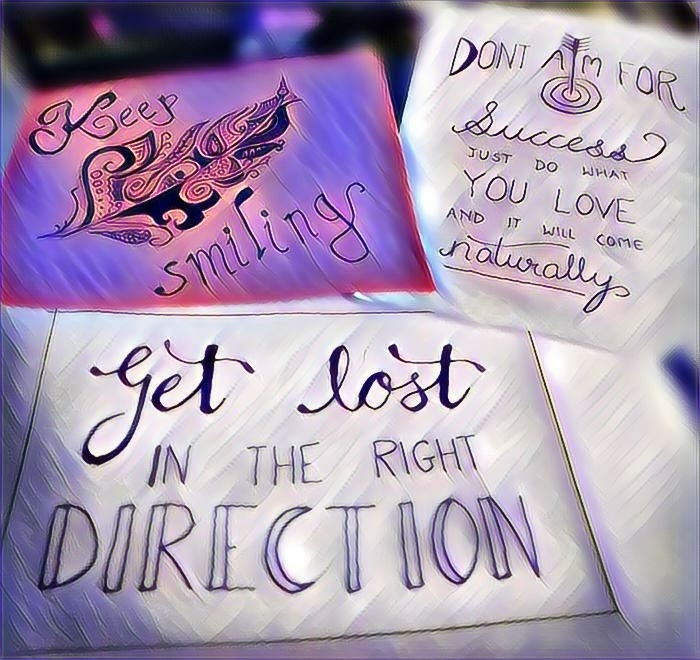 Keep
smiling
DONT AIM FOR
Success
JUST DO WHAT
YOU LOVE
AND IT WILL COME
naturally
Get lost
IN THE RIGHT
DIRECTION